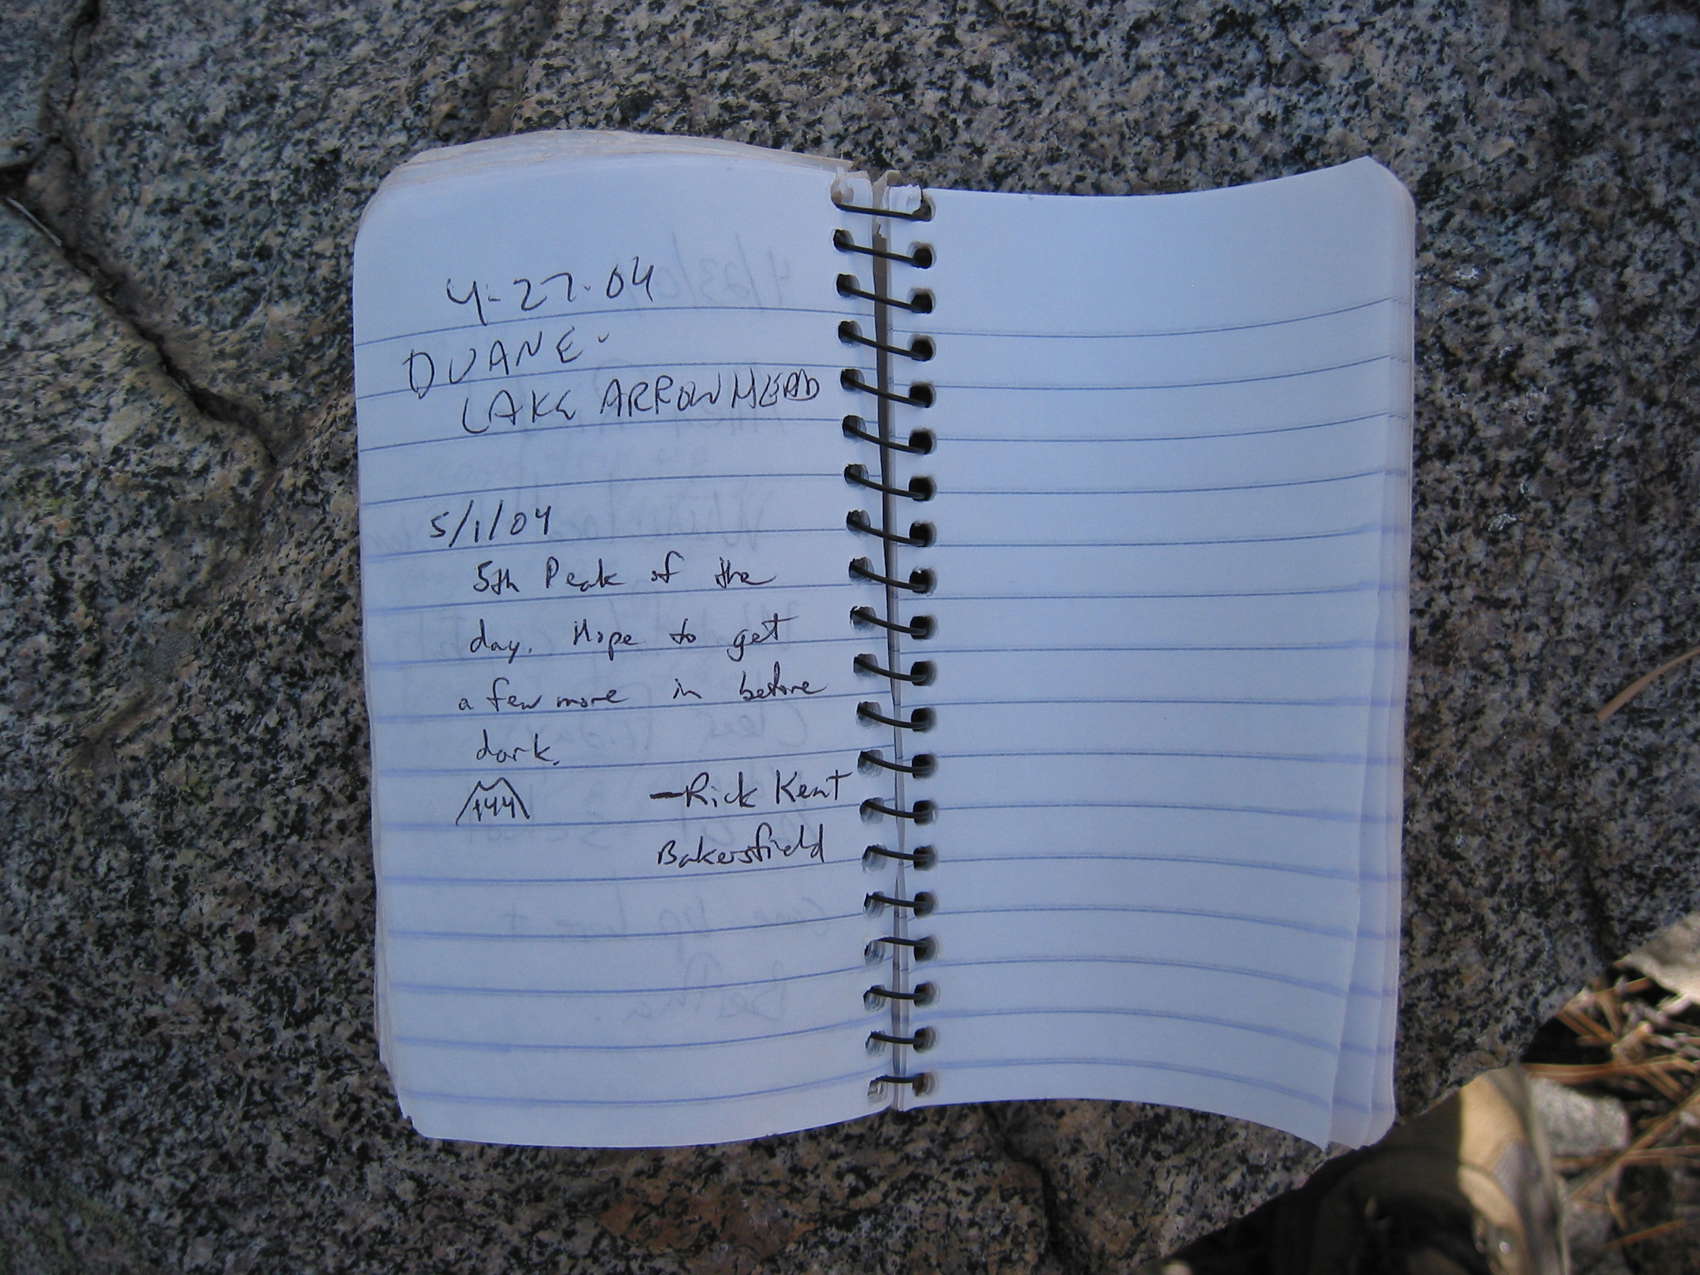 4-27-04
DUANE-
LAKE ARROWHEAD
5/1/04
5th Peak of the
day. Hope to get
a few more in before
dark.
-Rick Kent
Bakersfield